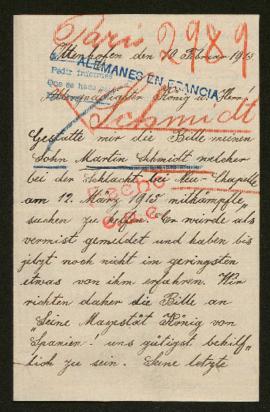 Paris 2989
Ottenhofen den 10 Februar 1915
ALEMANES EN FRANCIA
Pedir informes
Que se haga
Allergnädigster König u. Herr!
Schmidt
Gestatte mir die Bitte meinen
Sohn Martin Schmidt welcher
bei der Schlacht bei Neu-Chapelle
am 12. März 1915 mitkämpfte,
suchen zu helfen. Er wurde als
vermist gemeldet und haben bis
jetzt noch nicht im geringsten
etwas von ihm erfahren. Wir
richten daher die Bitte an
„Seine Magestät König von
Spanien! uns gütigst behilf„
lich zu sein. Seine letzte